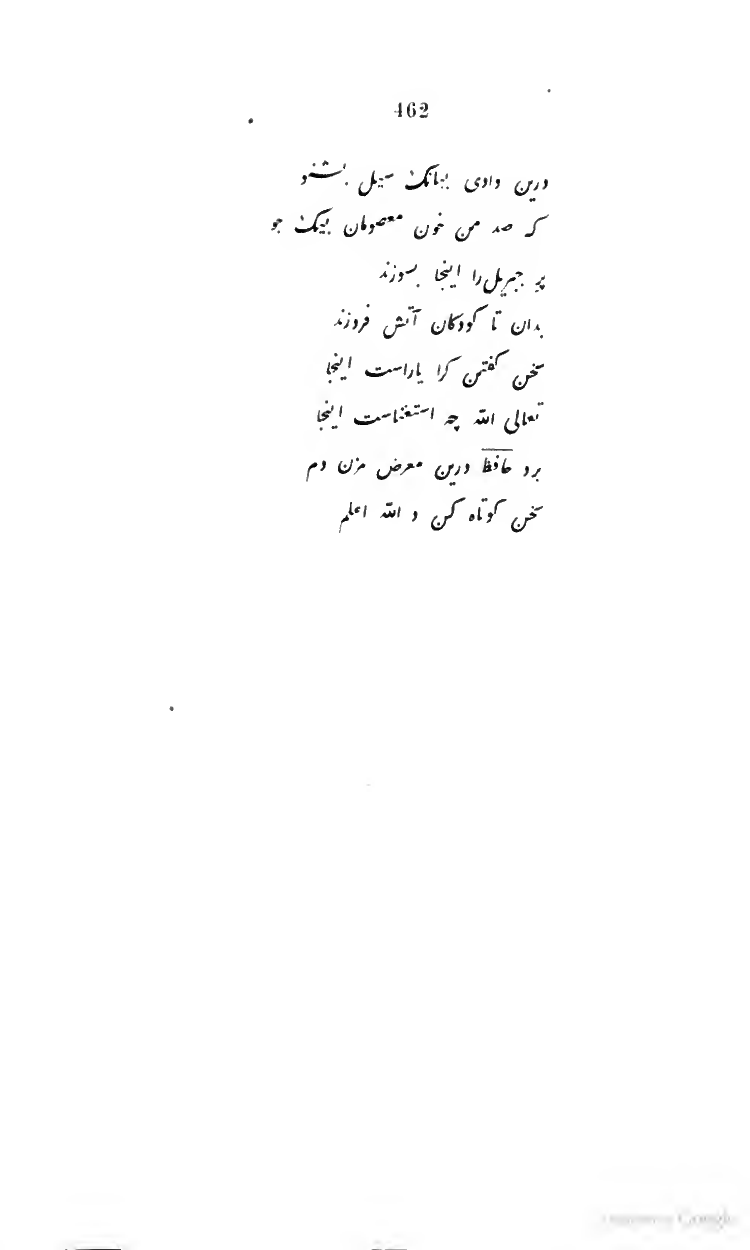 462
درین وادی ببانک سیل بشنو
که صد من خون معصومان بیک جو
پر جبریل را اینجا بسوزند
بدان تا کودکان آتش فروزند
سخن کفتن کرا یاراست اینجا
تعالی الله چه استغناست اینجا
برو حافظ درین معرض مزن دم
سخن کوتاه کن و الله اعلم
Google